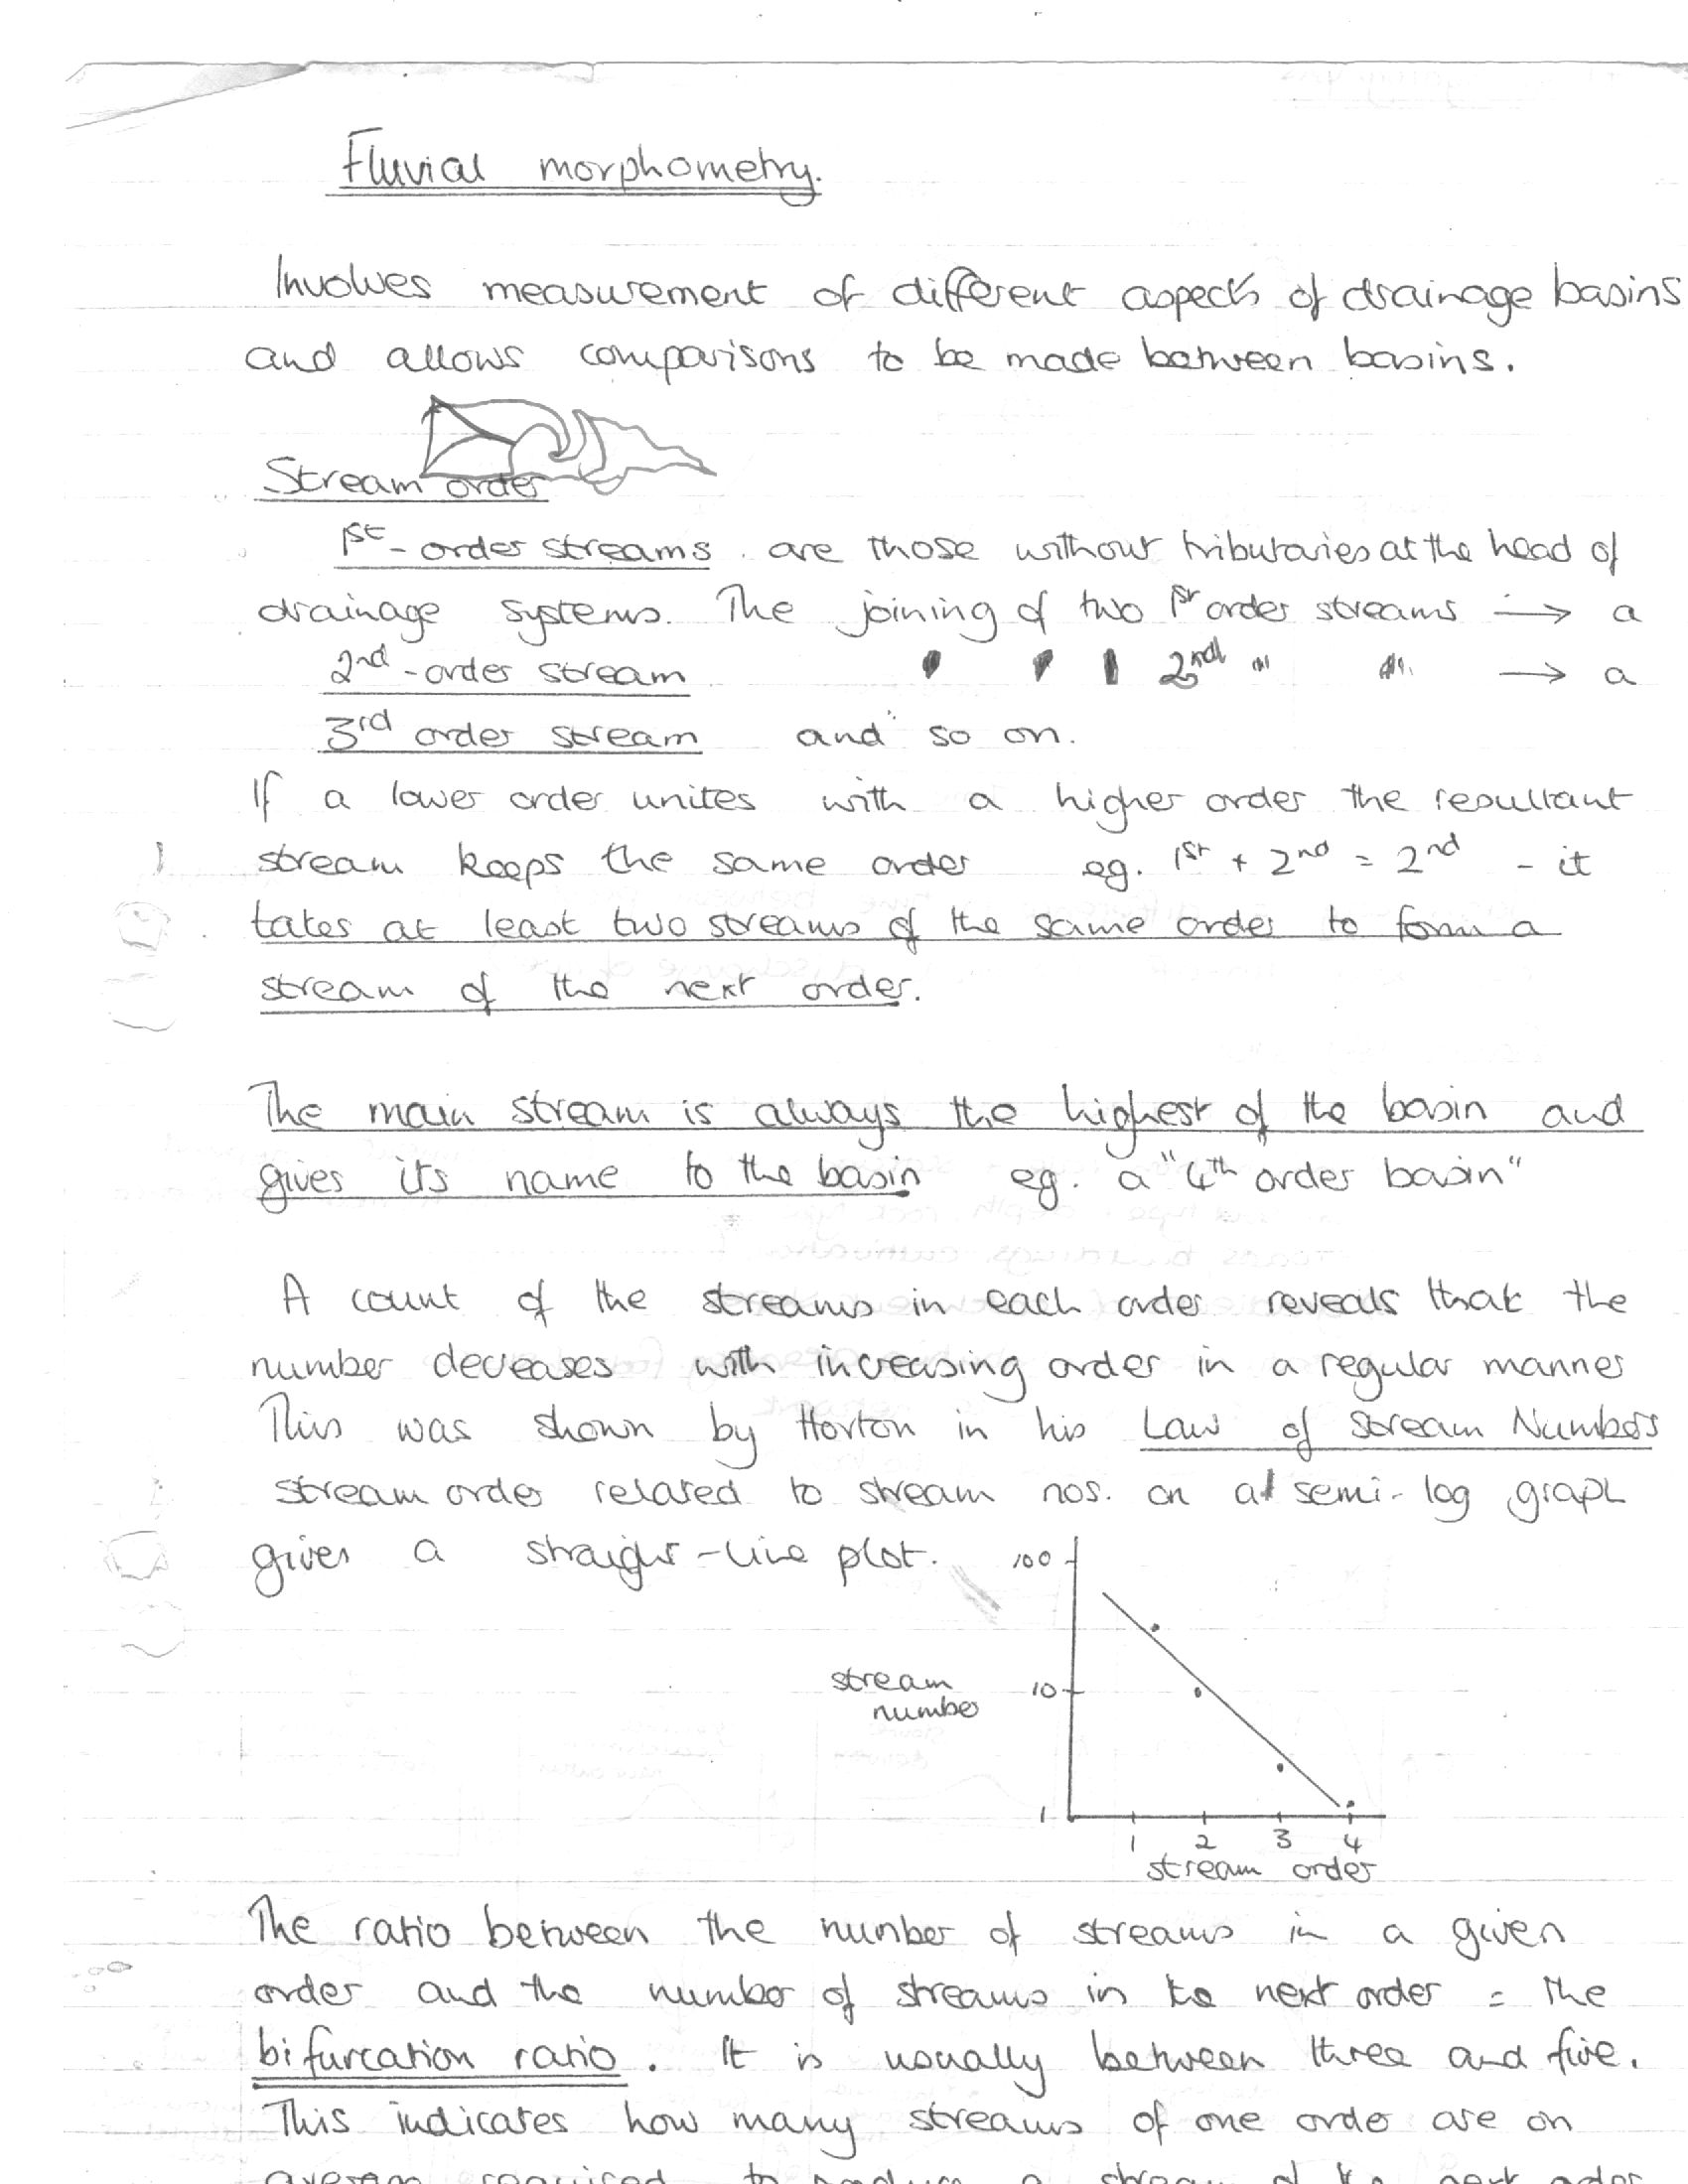 Fluvial morphometry.
Involves measurement of different aspects of drainage basins
and allows comparisons to be made between basins.
Stream order
1st - order streams are those without tributaries at the head of
drainage systems. The joining of two 1st order streams → a
2nd - order stream " " " 2nd " " → a
3rd order stream and so on.
If a lower order unites with a higher order the resultant
stream keeps the same order eg. 1st + 2nd = 2nd - it
takes at least two streams of the same order to form a
stream of the next order.
The main stream is always the highest of the basin and
gives its name to the basin eg. a "4th order basin"
A count of the streams in each order reveals that the
number decreases with increasing order in a regular manner
This was shown by Horton in his Law of Stream Numbers
stream order related to stream nos. on a semi-log graph
gives a straight-line plot.
100
stream
number
10
1
1 2 3 4
stream order
The ratio between the number of streams in a given
order and the number of streams in the next order = the
bifurcation ratio. It is usually between three and five.
This indicates how many streams of one order are on
average required to produce a stream of the next order